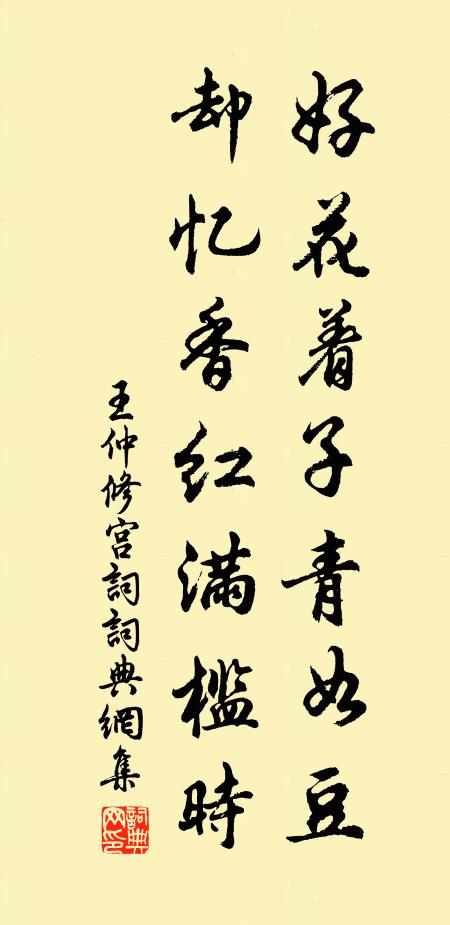 好花着子青如豆
却忆香红满槛時
王仲修宫詞詞典網集
詞典網印